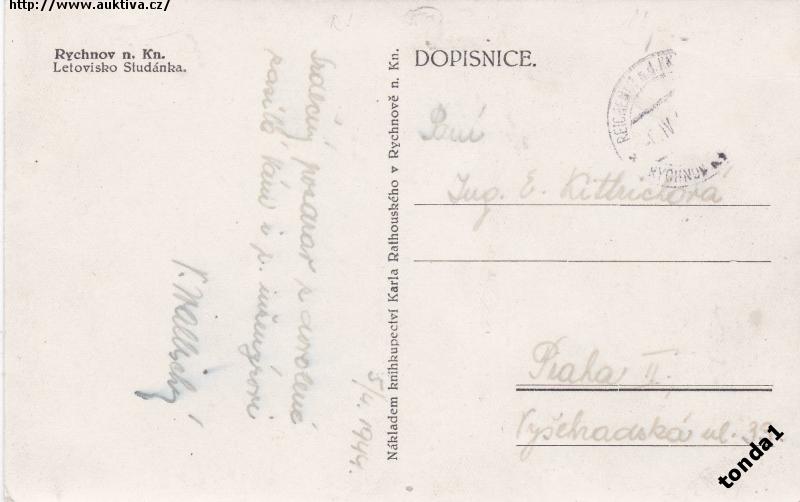 http://www.auktiva.cz/
Rychnov n. Kn.
Letovisko Studánka.
Srdečný pozdrav z dovolené
zasílá Vám i p. inženýrovi
5/4. 1944.
Nákladem knihkupectví Karla Rathouského v Rychnově n. Kn.
DOPISNICE.
RYCHNOV
Paní
Ing. E. Kittrichová
Praha II.
Vyšehradská ul.
tonda1